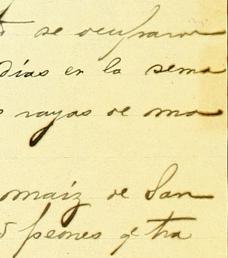 se ocuparon
días en la sema
rayas de mo
maiz de San
peones q tra